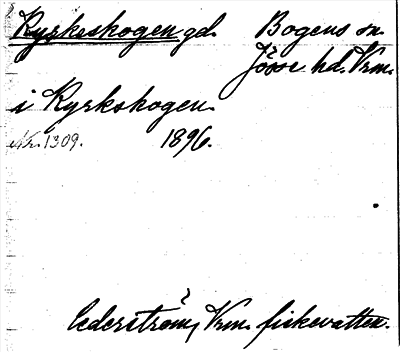 Kyrkeskogen gd. Bogens sn.
Jösse hd. Vrm.
i Kyrkskogen
Nr. 1309. 1896.
Cederström, Vrm. fiskevatten.